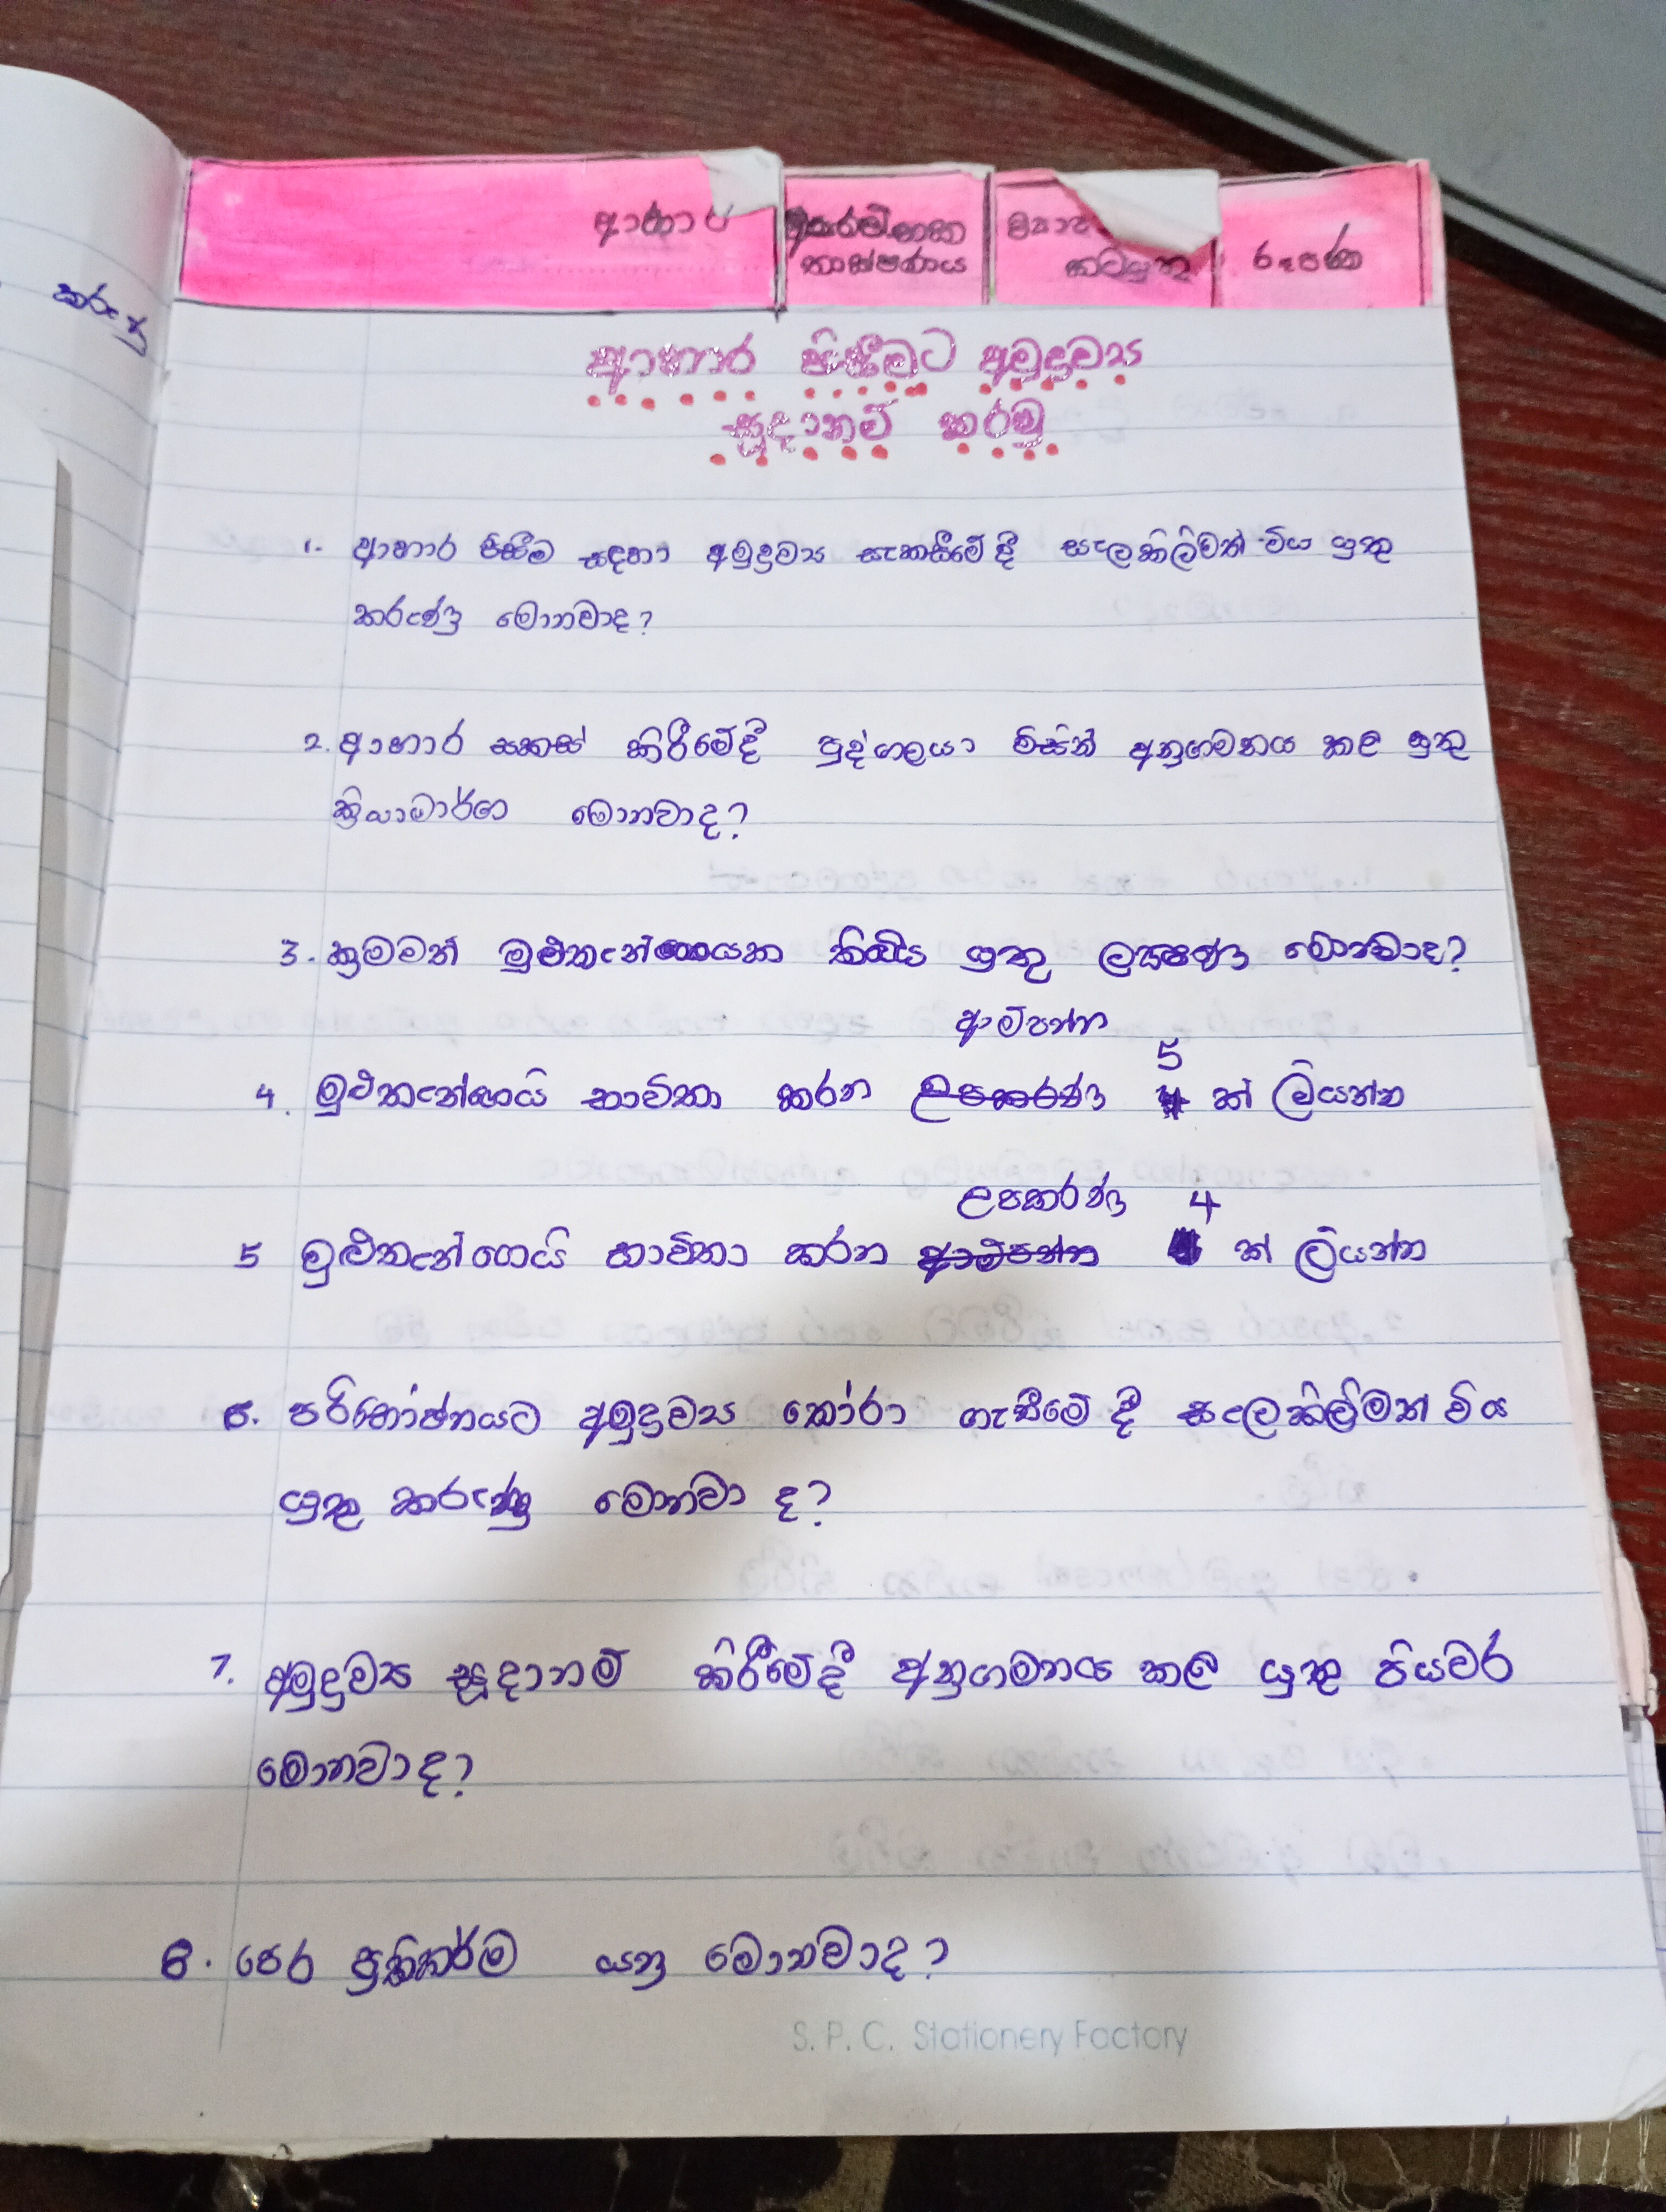 කරුණු
ආහාර
තාක්ෂණය
කටයුතු
රූපණ
ආහාර පිසීමට අමුද්‍රව්‍ය
සූදානම් කරමු
1. ආහාර පිසීම සඳහා අමුද්‍රව්‍ය සැකසීමේ දී සැලකිලිවත් විය යුතු
කරුණු මොනවාද?
2. ආහාර සකස් කිරීමේදී පුද්ගලයා විසින් අනුගමනය කළ යුතු
ක්‍රියාමාර්ග මොනවාද?
3. ක්‍රමමත් මුළුතැන්ගෙයක තිබිය යුතු ලක්ෂණ මොනවාද?
ආම්පන්න
5
4. මුළුතැන්ගෙයි භාවිතා කරන උපකරණ ක් ලියන්න
උපකරණ 4
5 මුළුතැන්ගෙයි භාවිතා කරන ආම්පන්න ක් ලියන්න
6. පරිභෝජනයට අමුද්‍රව්‍ය තෝරා ගැනීමේ දී සැලකිලිමත් විය
යුතු කරුණු මොනවා ද?
7. අමුද්‍රව්‍ය සූදානම් කිරීමේදී අනුගමනය කල යුතු පියවර
මොනවාද?
8. පෙර ප්‍රතිකර්ම යනු මොනවාද?
S. P. C. Stationery Factory